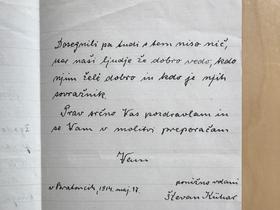 Dosegnili pa tudi s tem niso nič,
ker naši ljudje že dobro vedo, kdo
njim želé dobro in kdo je njih
sovražnik.
Prav srčno Vas pozdravlam in
se Vam v molitvi preporočam
Vam
ponižno vdani
v Bratoncih, 1914. maj. 17.
Števan Kühar